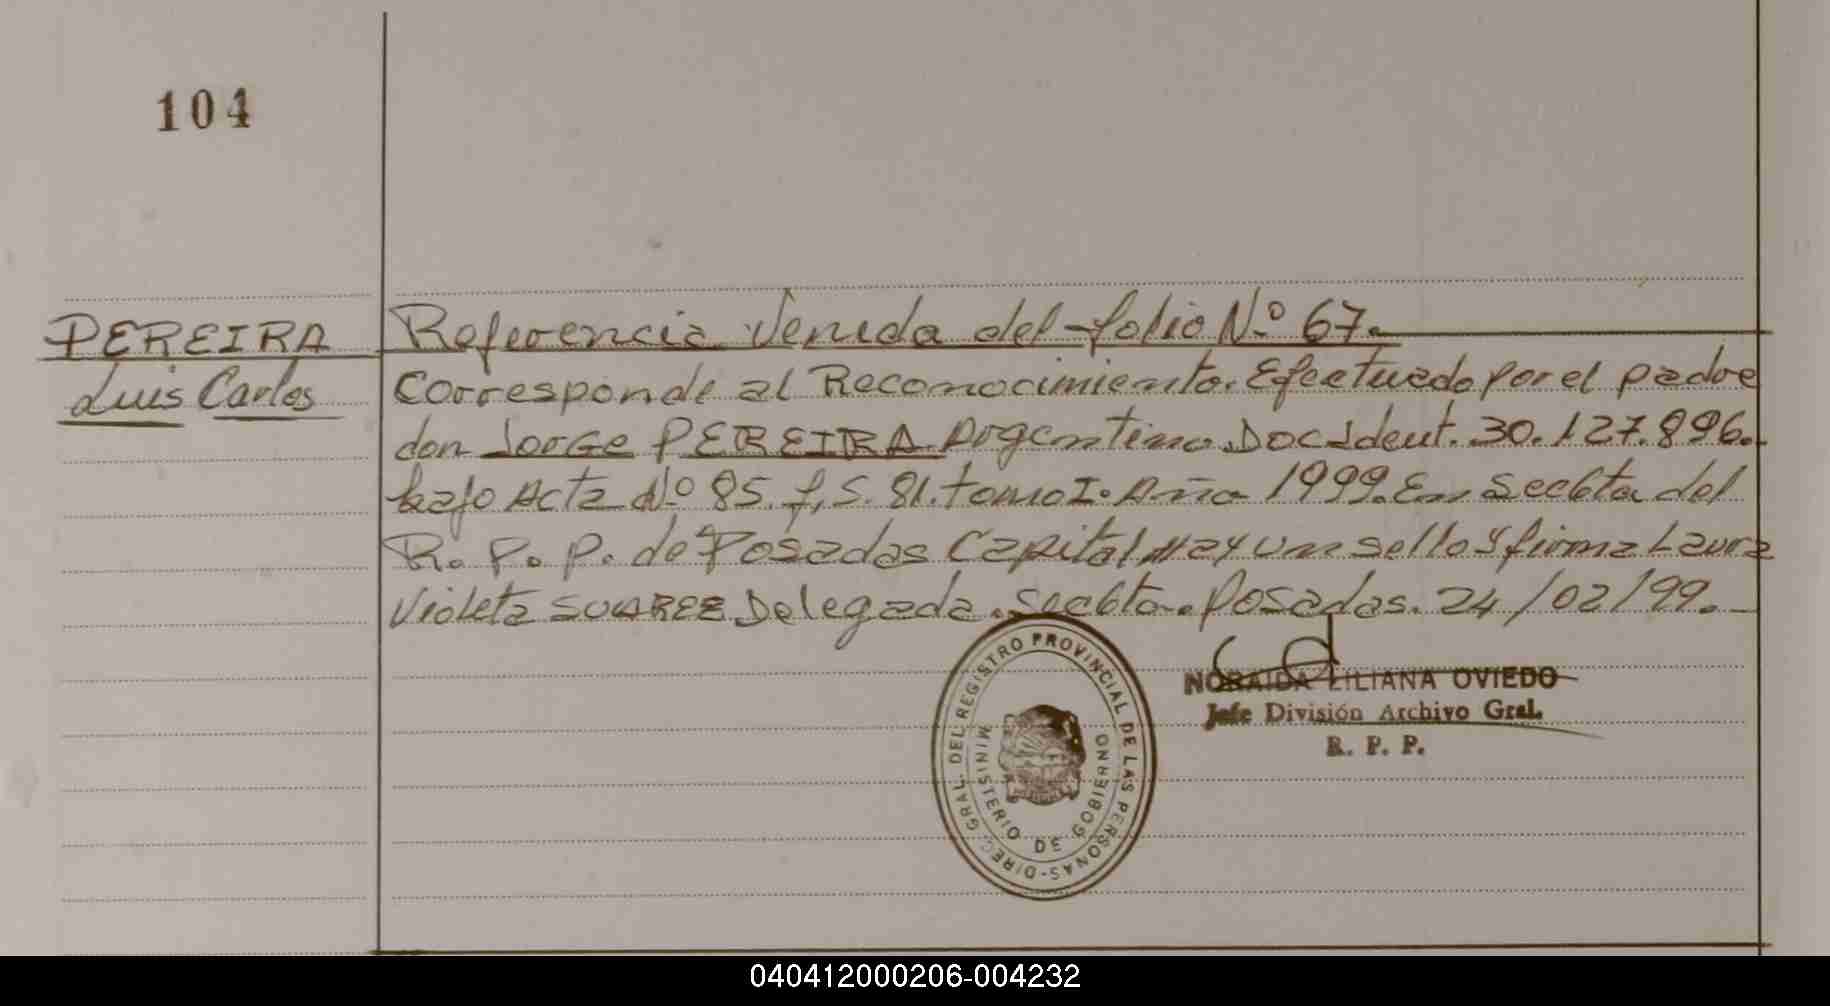 104
PEREIRA
Luis Carlos
Referencia Venida del folio Nº 67.
Corresponde al Reconocimiento. Efectuado por el padre
don Jorge PEREIRA Argentino. Doc Ident. 30.127.896.
bajo Acta Nº 85. f,S. 81. tomo I. Año 1999. En Sec 6ta del
R. P. P. de Posadas Capital Hay un sello y firma Laura
Violeta SUAREZ Delegada. Sec 6ta. Posadas. 24/02/99.
DIREC. GRAL. DEL REGISTRO PROVINCIAL DE LAS PERSONAS-
MINISTERIO DE GOBIERNO
NORAIDA LILIANA OVIEDO
Jefe División Archivo Gral.
R. P. P.
040412000206-004232